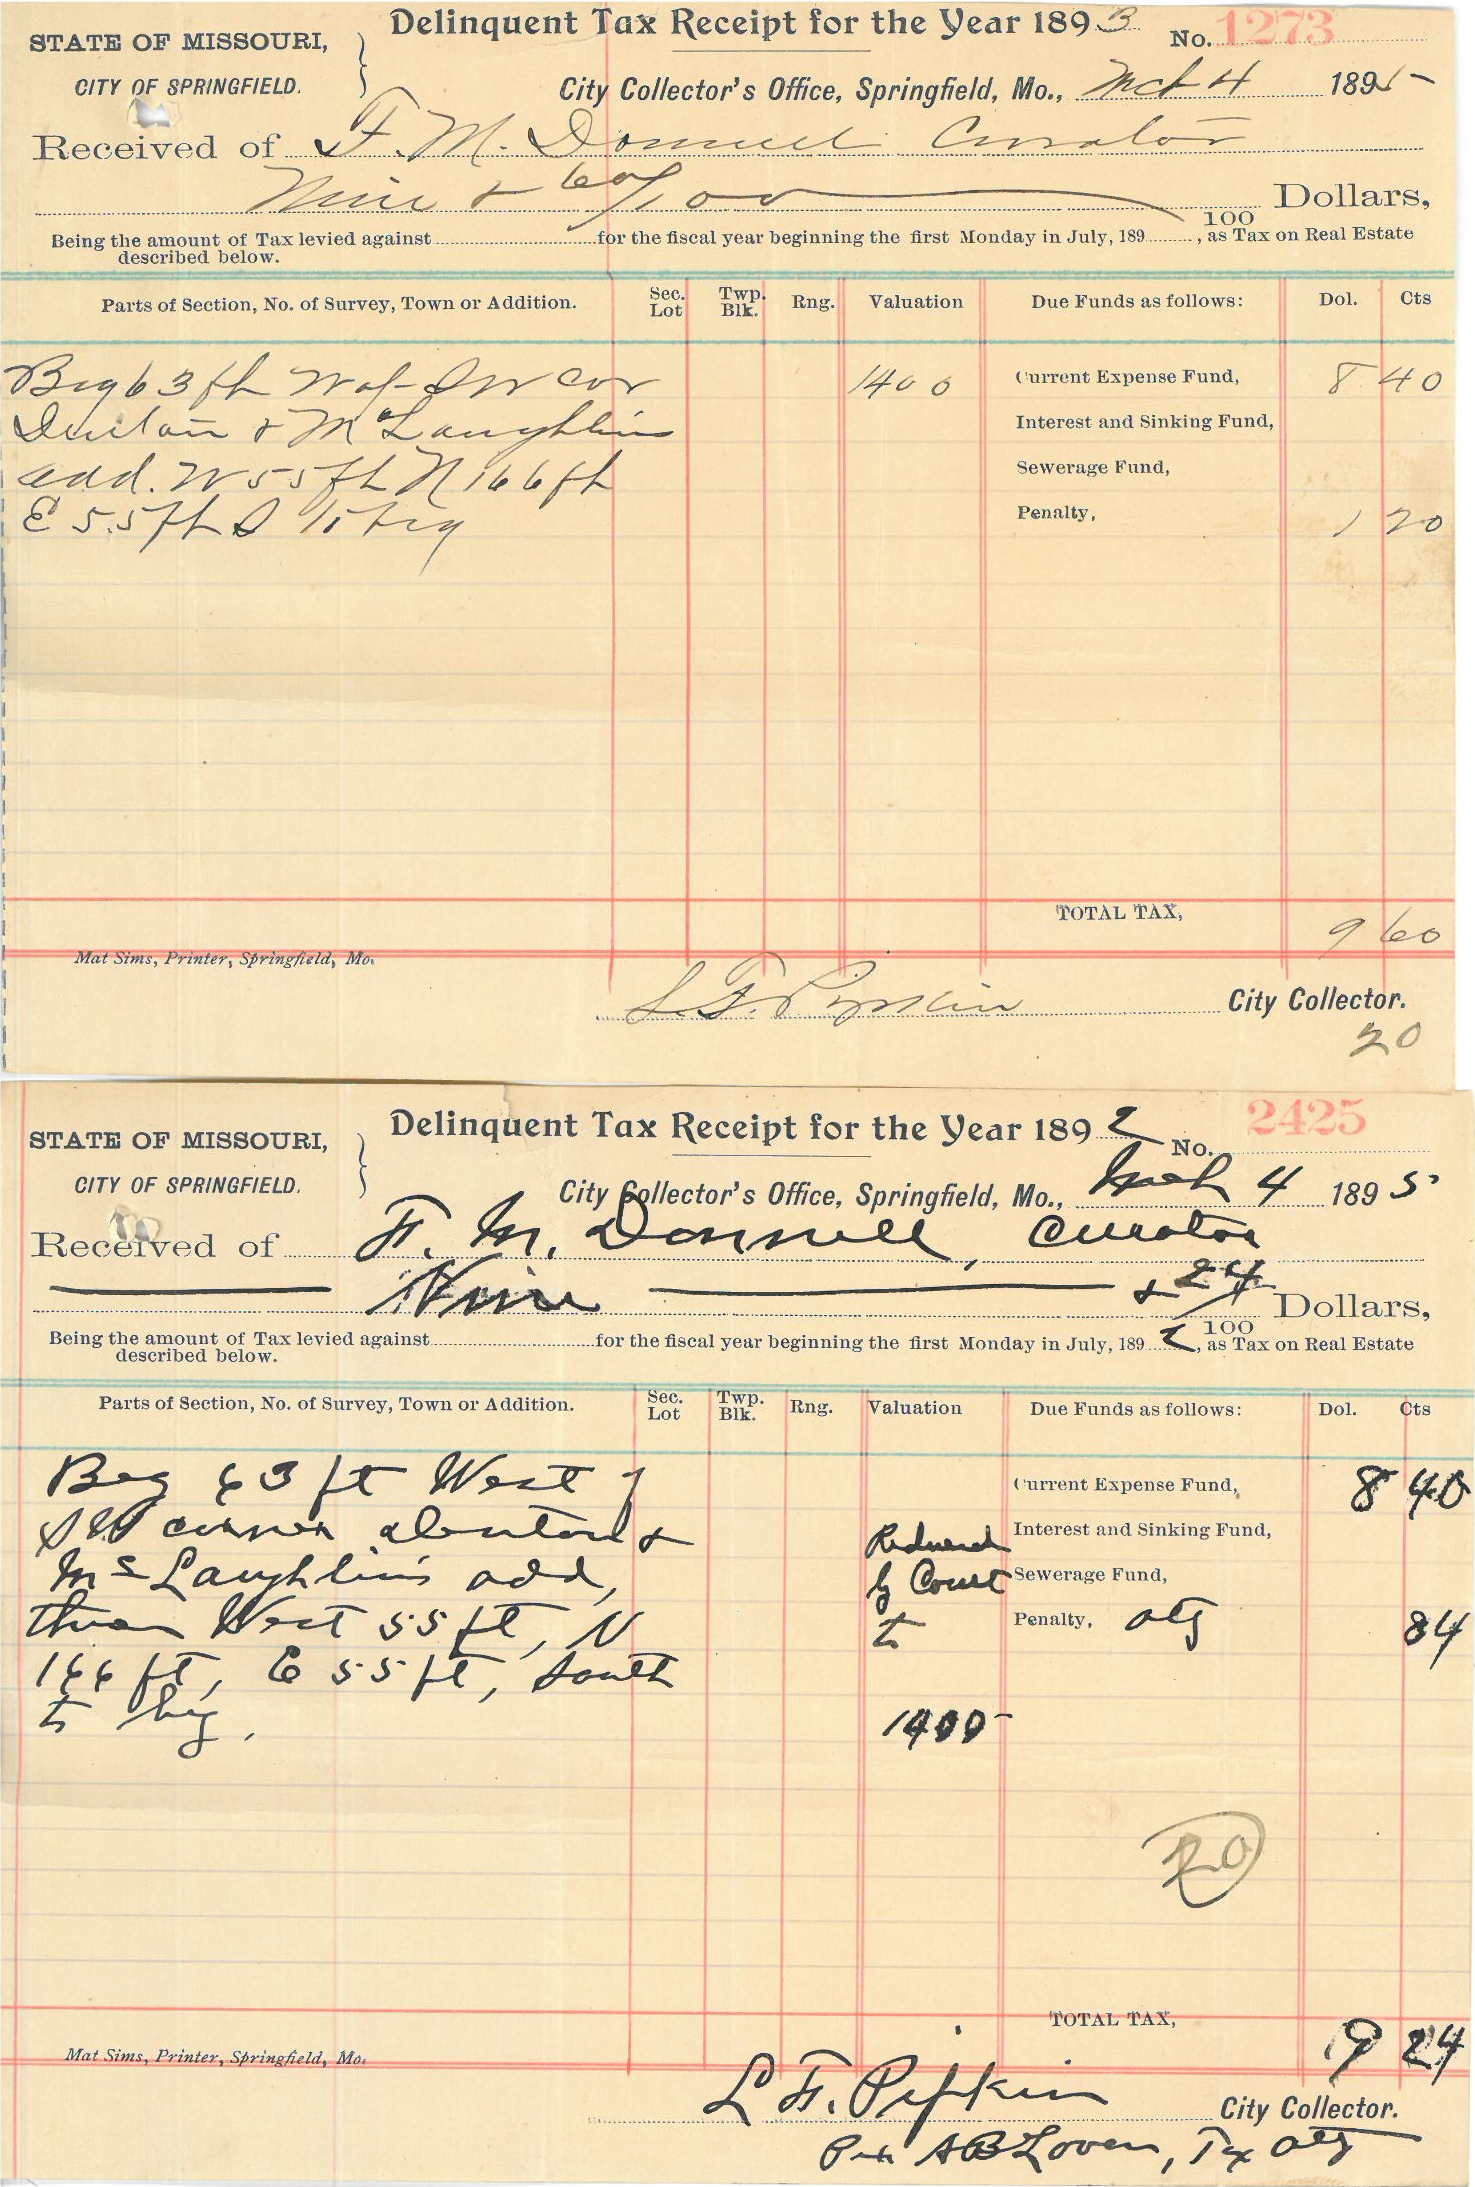 Delinquent Tax Receipt for the Year 1893
No. 1273
STATE OF MISSOURI,
CITY OF SPRINGFIELD.
City Collector's Office, Springfield, Mo., Mch 4 1895
Received of F. M. Donnell Curator
Nine & 60/100 Dollars,
100
Being the amount of Tax levied against for the fiscal year beginning the first Monday in July, 189 , as Tax on Real Estate
described below.
Parts of Section, No. of Survey, Town or Addition. Sec. Lot Twp. Blk. Rng. Valuation Due Funds as follows: Dol. Cts
Beg 63 ft W of S W cor 1400 Current Expense Fund, 8 40
& McLaughlins Interest and Sinking Fund,
add. W 55 ft N 166 ft Sewerage Fund,
E 55 ft S to beg Penalty, 1 20
TOTAL TAX, 9 60
Mat Sims, Printer, Springfield, Mo.
L. F. Pipkin City Collector.
20
Delinquent Tax Receipt for the Year 1892
No. 2425
STATE OF MISSOURI,
CITY OF SPRINGFIELD.
City Collector's Office, Springfield, Mo., Mch 4 1895
Received of F. M. Donnell, Curator
Nine & 24/100 Dollars,
Being the amount of Tax levied against for the fiscal year beginning the first Monday in July, 1892, as Tax on Real Estate
described below.
Parts of Section, No. of Survey, Town or Addition. Sec. Lot Twp. Blk. Rng. Valuation Due Funds as follows: Dol. Cts
Beg 63 ft West of Current Expense Fund, 8 40
SW corner & Reduced Interest and Sinking Fund,
McLaughlins add, by Court Sewerage Fund,
thence West 55 ft, N to Penalty, atty 84
166 ft, E 55 ft, South
to beg. 1400-
20
TOTAL TAX, 9 24
Mat Sims, Printer, Springfield, Mo.
L F. Pipkin City Collector.
Per A B Loven, Tax atty